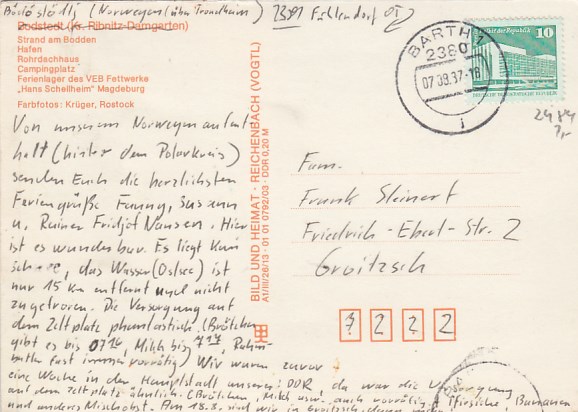 (Norwegen (über Trondheim)
2391 Fuhlendorf OT)
Bodstedt (Kr. Ribnitz-Damgarten)
Strand am Bodden
Hafen
Rohrdachhaus
Campingplatz
Ferienlager des VEB Fettwerke
„Hans Schellheim" Magdeburg
Farbfotos: Krüger, Rostock
BILD UND HEIMAT · REICHENBACH (VOGTL)
A1/III/26/13 · 01 01 0792/03 · DDR 0,20 M
BARTH
2380
07.08.87-18
10
Von unserem Norwegenaufent
halt (hinter dem Polarkreis)
senden Euch die herzlichsten
Feriengrüße Fanny, Susann
u. Rainer Fridjof Nansen. Hier
ist es wunderbar. Es liegt kein
das Wasser (Ostsee) ist
nur 15 km entfernt und nicht
zugefroren. Die Versorgung auf
dem Zeltplatz phantastisch (Brötchen
gibt es bis 07 Milch bis
fast immer vorrätig) Wir waren zuvor
eine Woche in der Hauptstadt unserer DDR, da war die Versorgung
auf dem Zeltplatz ähnlich (Brötchen, Milch usw. auch vorrätig) Pfirsiche, Bananen
und anderes Mischobst. Am 18.8. sind wir in Groitzsch,
Fam.
Frank Steinert
Friedrich-Ebert-Str. 2
Groitzsch
7222